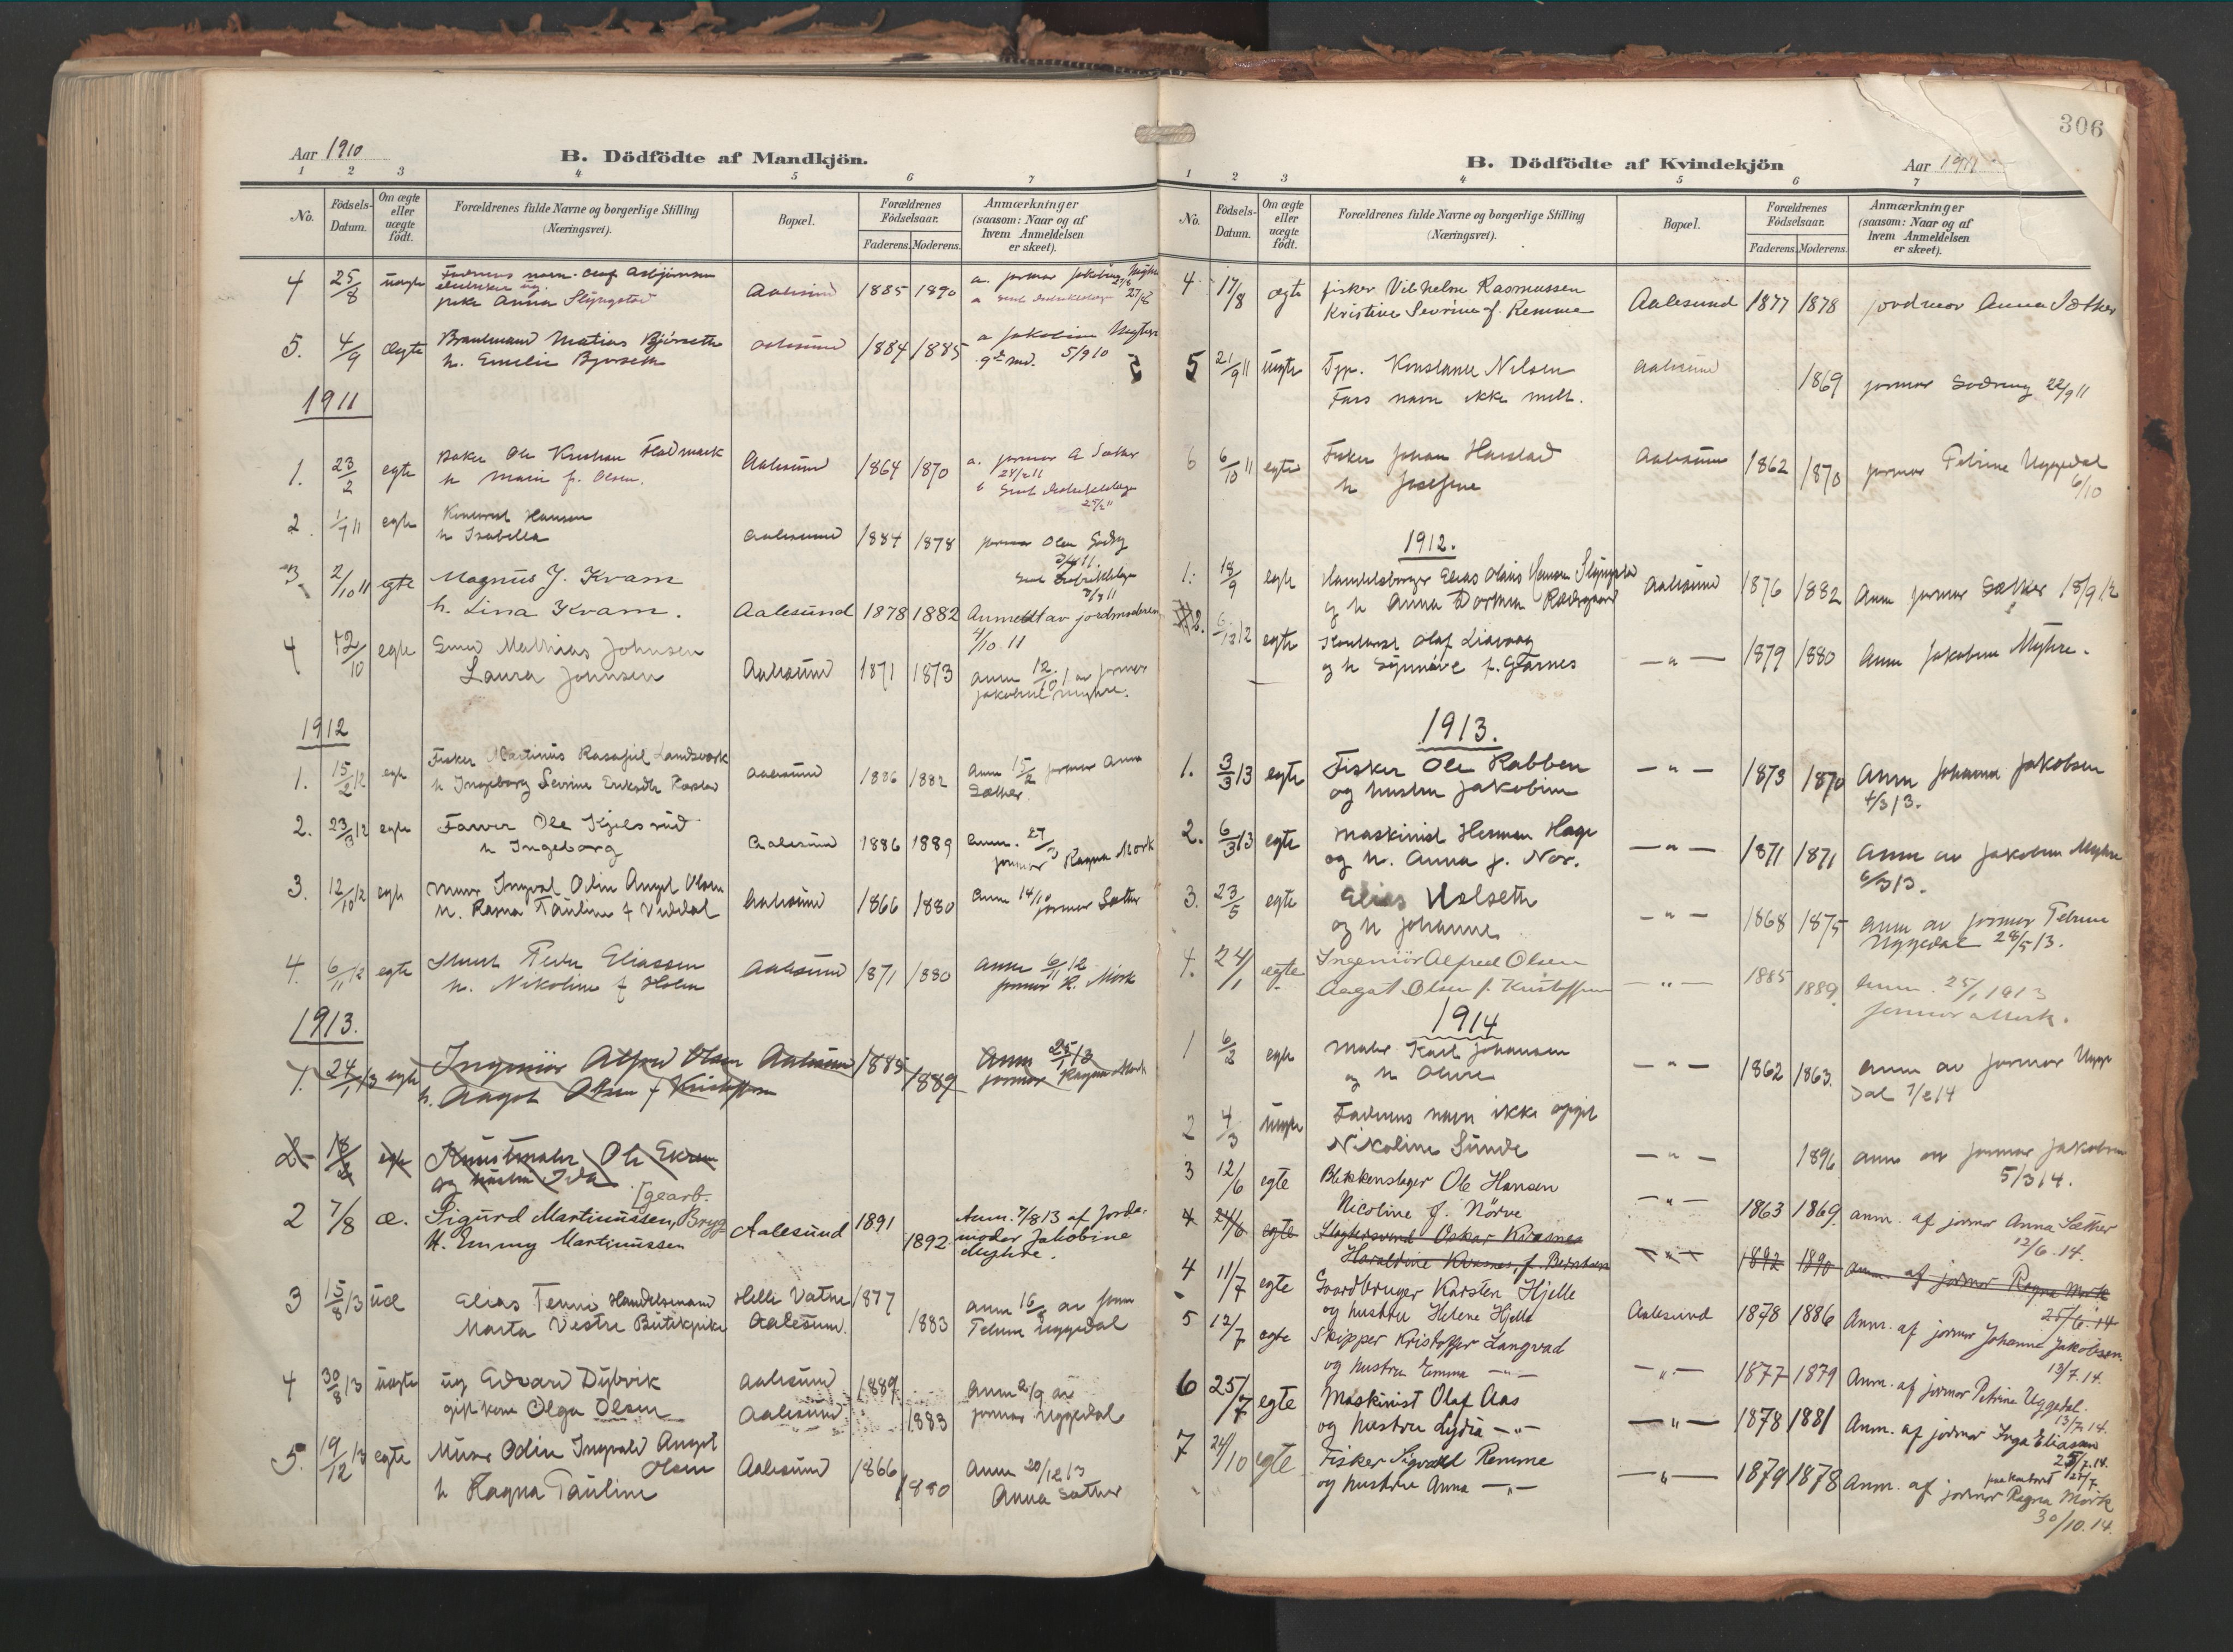 306
Aar 1910
B. Dödfödte af Mandkjön.
1 2 3 4 5 6 7
No.
Födsels-Datum.
Om ægte eller uægte födt.
Forældrenes fulde Navne og borgerlige Stilling (Næringsvei).
Bopæl.
Forældrenes Födselsaar.
Faderens. Moderens.
Anmærkninger (saasom: Naar og af hvem Anmeldelsen er skeet).
4 25/8 uægte Faderens navn Olaf Asbjörnsen
pike Anna Slyngstad Aalesund 1885 1890
5. 4/9 ægte Brandmand Matias Bjørseth
h. Emelie Bjørseth Aalesund 1884 1885 5/9 10
1911
1. 23/2 egte Ole Kristian Flodmark
h Marie f. Olsen. Aalesund 1864 1870 a. jormor A Sæther
2. 1/7 11 egte Hansen
h Isabella Aalesund 1884 1878
3. 2/10 11 egte Magnus J. Kvam
h. Lina Kvam. Aalesund 1878 1882 Anmeldt av jordmoderen
4/10 11
4 12/10 egte Smed Mathias Johnsen
Laura Johnsen Aalesund 1871 1873 anm 12/10 av jormor
Jakobine Myhre.
1912
1. 15/2 12 egte Fisker Martinus Landsverk
h Ingeborg Sevrine Aalesund 1886 1882 Anm 15/2 jormor Anna
Sæther.
2. 23/3 12 egte Farver Ole Kjelsrud
h Ingeborg Aalesund 1886 1889 Anm.
jormor Ragna Mork
3. 12/10 12 egte Murer Ingval Odin Angel Olsen
h. Ragna Pauline f Veddal Aalesund 1866 1880 Anm 14/10
jormor Sæther
4. 6/11 12 egte Peder Eliassen
h. Nikoline f Holm Aalesund 1871 1880 Anm 6/11 12
jormor R. Mork
1913.
1. 24/1 13 egte Ingeniör Alfred Olsen Aalesund 1885 Anm 25/1 13
h. Aagot Olsen f Kristoffersen 1889 jormor Ragna Mork
2 18/2 egte Kunstmaler Ole Ekrem
og hustru Ida
2 7/8 æ. Sigurd Martinussen, Bryg-
[gearb.
H. Emmy Martinussen Aalesund 1891 1892 Anm. 7/8 13 af jorde-
moder Jakobine
Myhre.
3 15/8 13 Elias Tenni Handelsmand Helle Vatne 1877
Marta Vestre Butikpike Aalesund. 1883 anm 16/8 av jorm
Petrine Uggedal
4 30/8 13 uægte ug Edvard Dybvik Aalesund 1889
gift kone Olga Olsen Aalesund 1883 Anm 2/9 av
jormor Uggedal
5. 19/12 13 egte Murer Odin Ingvald Angel
Olsen Aalesund 1866
h Ragna Pauline 1880 Anm 20/12 13
Anna Sæther
B. Dödfödte af Kvindekjön
Aar 1911
1 2 3 4 5 6 7
No.
Födsels-Datum.
Om ægte eller uægte födt.
Forældrenes fulde Navne og borgerlige Stilling (Næringsvei).
Bopæl.
Forældrenes Födselsaar.
Faderens. Moderens.
Anmærkninger (saasom: Naar og af hvem Anmeldelsen er skeet).
4 17/8 ægte fisker Vilhelm Rasmussen
Kristine Sevrine f. Remme Aalesund 1877 1878 jordmor Anna Sæther
5 21/9 11 uegte Konstanse Nilsen
Fars navn ikke Aalesund 1869 jormor 22/9 11
6 6/10 11 egte Fisker Johan Harstad
h Josefine Aalesund 1862 1870 jormor Petrine Uggedal
6/10
1912.
1. 18/9 egte Handelsborger Elias Olaus Hansen Slyngstad
og h Anna Aalesund 1876 1882 Anm jormor Sæther 18/9 12
2. 6/12 12 egte Olaf Liavaag
og h Synnöve f. Garnes — " — 1879 1880 Anm Jakobine Myhre.
1913.
1. 3/3 13 egte Fisker Ole Rabben
og hustru Jakobine — " — 1873 1870 Anm Johanna Jakobsen
4/3 13.
2. 6/3 13 egte Maskinist Herman Hage
og h. Anna f. Nor. — " — 1871 1871 Anm av Jakobine Myhre
6/3 13.
3. 23/5 egte Elias Holseth
og h Johanne — " — 1868 1875 anm av jormor Petrine
Uggedal 28/5 13.
4. 24/1 egte Ingeniör Alfred Olsen
Aagot Olsen f. Kristoffersen — " — 1885 1889 Anm. 25/1 1913
jormor Mork.
1914
1 6/2 egte Maler Karl Johansen
og h Oline — " — 1862 1863. anm av jormor Ugge-
dal 7/2 14
2 4/3 uegte Faderens navn ikke opgit
Nikoline Sunde — " — 1896 anm av jormor Jakobsen
5/3 14.
3 12/6 egte Blikkenslager Ole Hansen
Nicoline f. Nörve — " — 1863 1869. anm. af jormor Anna Sæther
12/6.14.
4 24/6 egte Slagtersvend Oskar Kvasnes
Haraldine Kvasnes, f. — " — 1892 1890 anm. af jormor Ragna Mork
25/6.14
4 11/7 egte Gaardbruger Karsten Hjelle
og hustru Helene Hjelle Aalesund 1878 1886 Anm. af jormor Johanna Jakobsen.
13/7.14.
5 12/7 egte Skipper Kristoffer Langvad
og hustru Emma — " — — " — 1877 1879 Anm. af jormor Petrine Uggedal.
13/7.14.
6 25/7 egte Maskinist Olaf Aas
og hustru Lydia — " — — " — 1878 1881 Anm. af jormor Inga Eliassen
25/7.14.
7 24/10 egte Fisker Sigvald Remme
og hustru Anna — " — — " — 1879 1878 Anm. af jormor Ragna Mork
30/10.14.